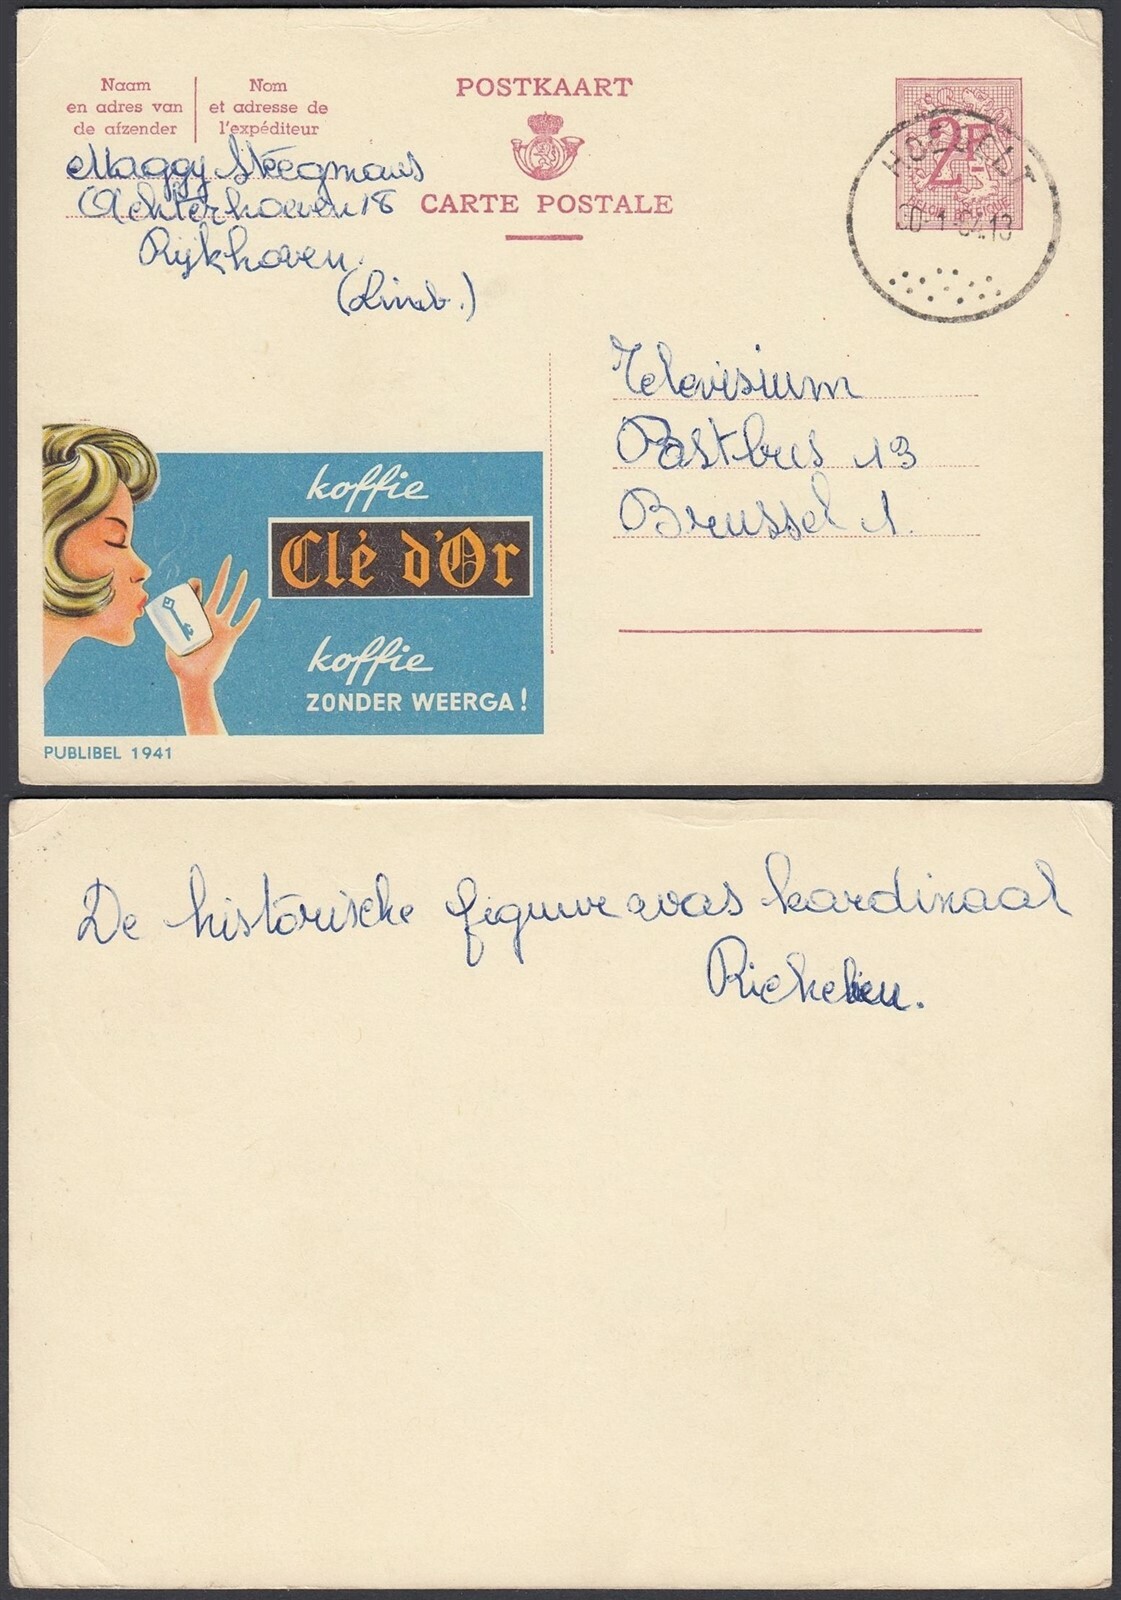 Naam
en adres van
de afzender
Nom
et adresse de
l'expéditeur
POSTKAART
CARTE POSTALE
2F
BELGIE BELGIQUE
Maggy Steegmans
Achterhoeven 18
Rijkhoven
(Limb.)
Televisium
Postbus 13
Brussel 1.
koffie
Clé d'Or
koffie
ZONDER WEERGA!
PUBLIBEL 1941
De historische figuur was kardinaal
Richelieu.